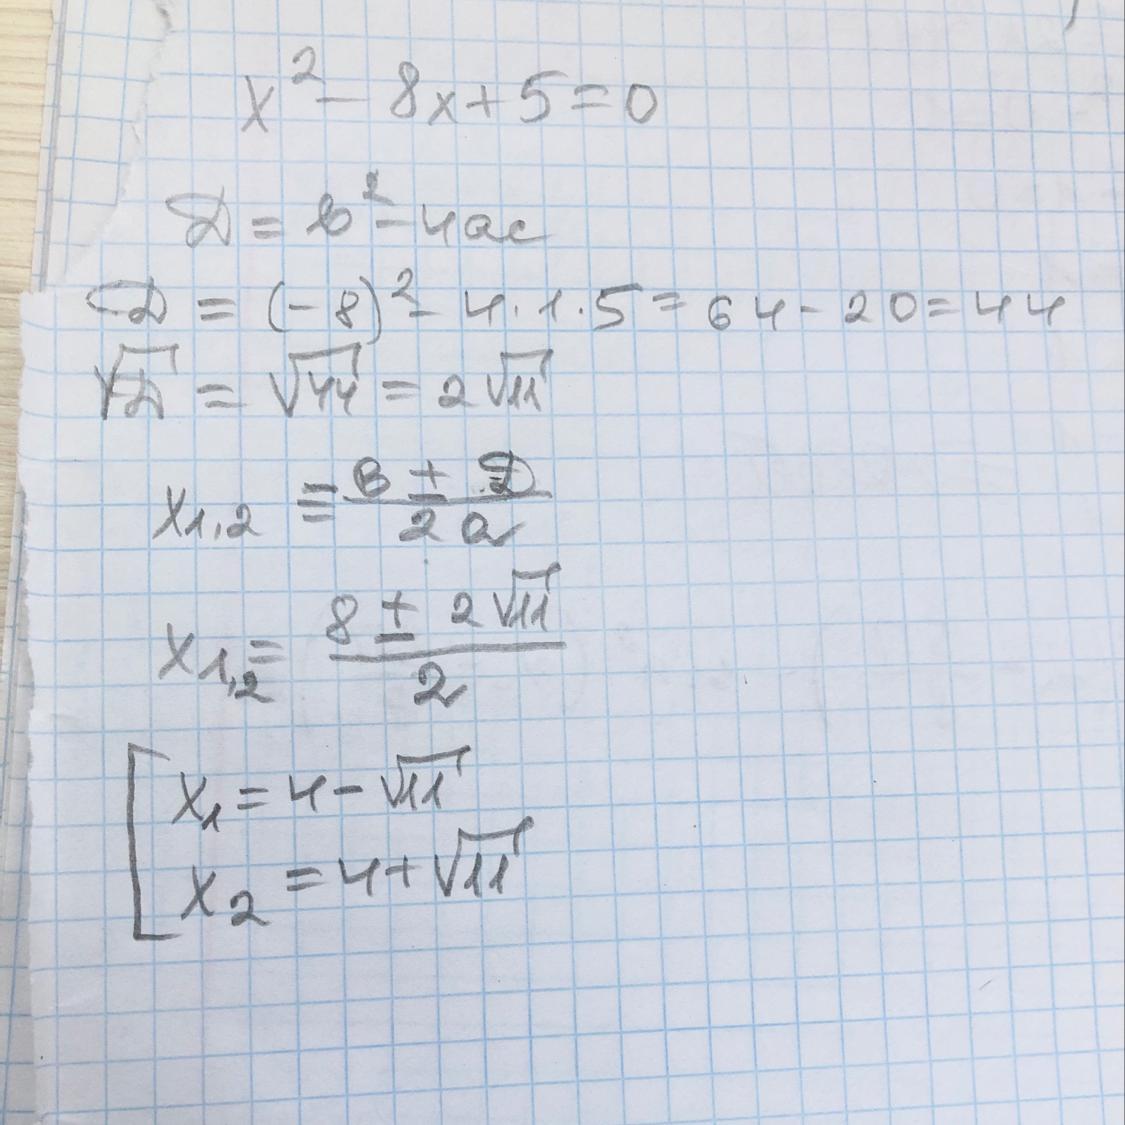 x² - 8x + 5 = 0
D = b² - 4ac
D = (-8)² - 4 · 1 · 5 = 64 - 20 = 44
√D = √44 = 2√11
x₁,₂ = (в ± D) / (2a)
x₁,₂ = (8 ± 2√11) / 2
[ x₁ = 4 - √11
x₂ = 4 + √11